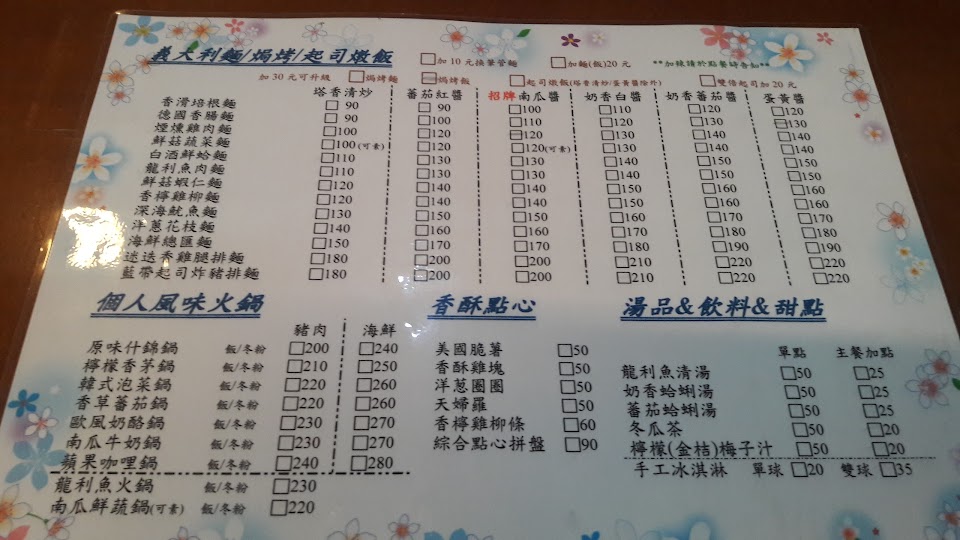 義大利麵/焗烤/起司燉飯
□加10元換筆管麵 □加麵(飯)20元 **加辣請於點餐時告知**
加30元可升級 □焗烤麵 □焗烤飯 □起司燉飯(塔香清炒/蛋黃醬除外) □雙倍起司加20元
塔香清炒 蕃茄紅醬 招牌南瓜醬 奶香白醬 奶香蕃茄醬 蛋黃醬
香滑培根麵 □90 □90 □100 □110 □120 □120
德國香腸麵 □90 □100 □110 □120 □130 □130
煙燻雞肉麵 □100 □110 □120 □130 □140 □140
鮮菇蔬菜麵 □100(可素) □120 □120(可素) □130 □140 □140
白酒鮮蛤麵 □110 □120 □130 □140 □150 □150
龍利魚肉麵 □110 □130 □130 □140 □150 □150
鮮菇蝦仁麵 □120 □140 □140 □150 □160 □160
香檸雞柳麵 □120 □140 □140 □150 □160 □160
深海魷魚麵 □130 □150 □150 □160 □170 □170
洋蔥花枝麵 □140 □160 □160 □170 □180 □180
海鮮總匯麵 □150 □170 □170 □180 □190 □190
迷迭香雞腿排麵 □180 □200 □200 □210 □220 □220
藍帶起司炸豬排麵 □180 □200 □200 □210 □220 □220
個人風味火鍋
豬肉 海鮮
原味什錦鍋 飯/冬粉 □200 □240
檸檬香茅鍋 飯/冬粉 □210 □250
韓式泡菜鍋 飯/冬粉 □220 □260
香草蕃茄鍋 飯/冬粉 □220 □260
歐風奶酪鍋 飯/冬粉 □230 □270
南瓜牛奶鍋 飯/冬粉 □230 □270
蘋果咖哩鍋 飯/冬粉 □240 □280
龍利魚火鍋 飯/冬粉 □230
南瓜鮮蔬鍋(可素) 飯/冬粉 □220
香酥點心
美國脆薯 □50
香酥雞塊 □50
洋蔥圈圈 □50
天婦羅 □50
香檸雞柳條 □60
綜合點心拼盤 □90
湯品&飲料&甜點
單點 主餐加點
龍利魚清湯 □50 □25
奶香蛤蜊湯 □50 □25
蕃茄蛤蜊湯 □50 □25
冬瓜茶 □50 □20
檸檬(金桔)梅子汁 □50 □20
手工冰淇淋 單球 □20 雙球 □35